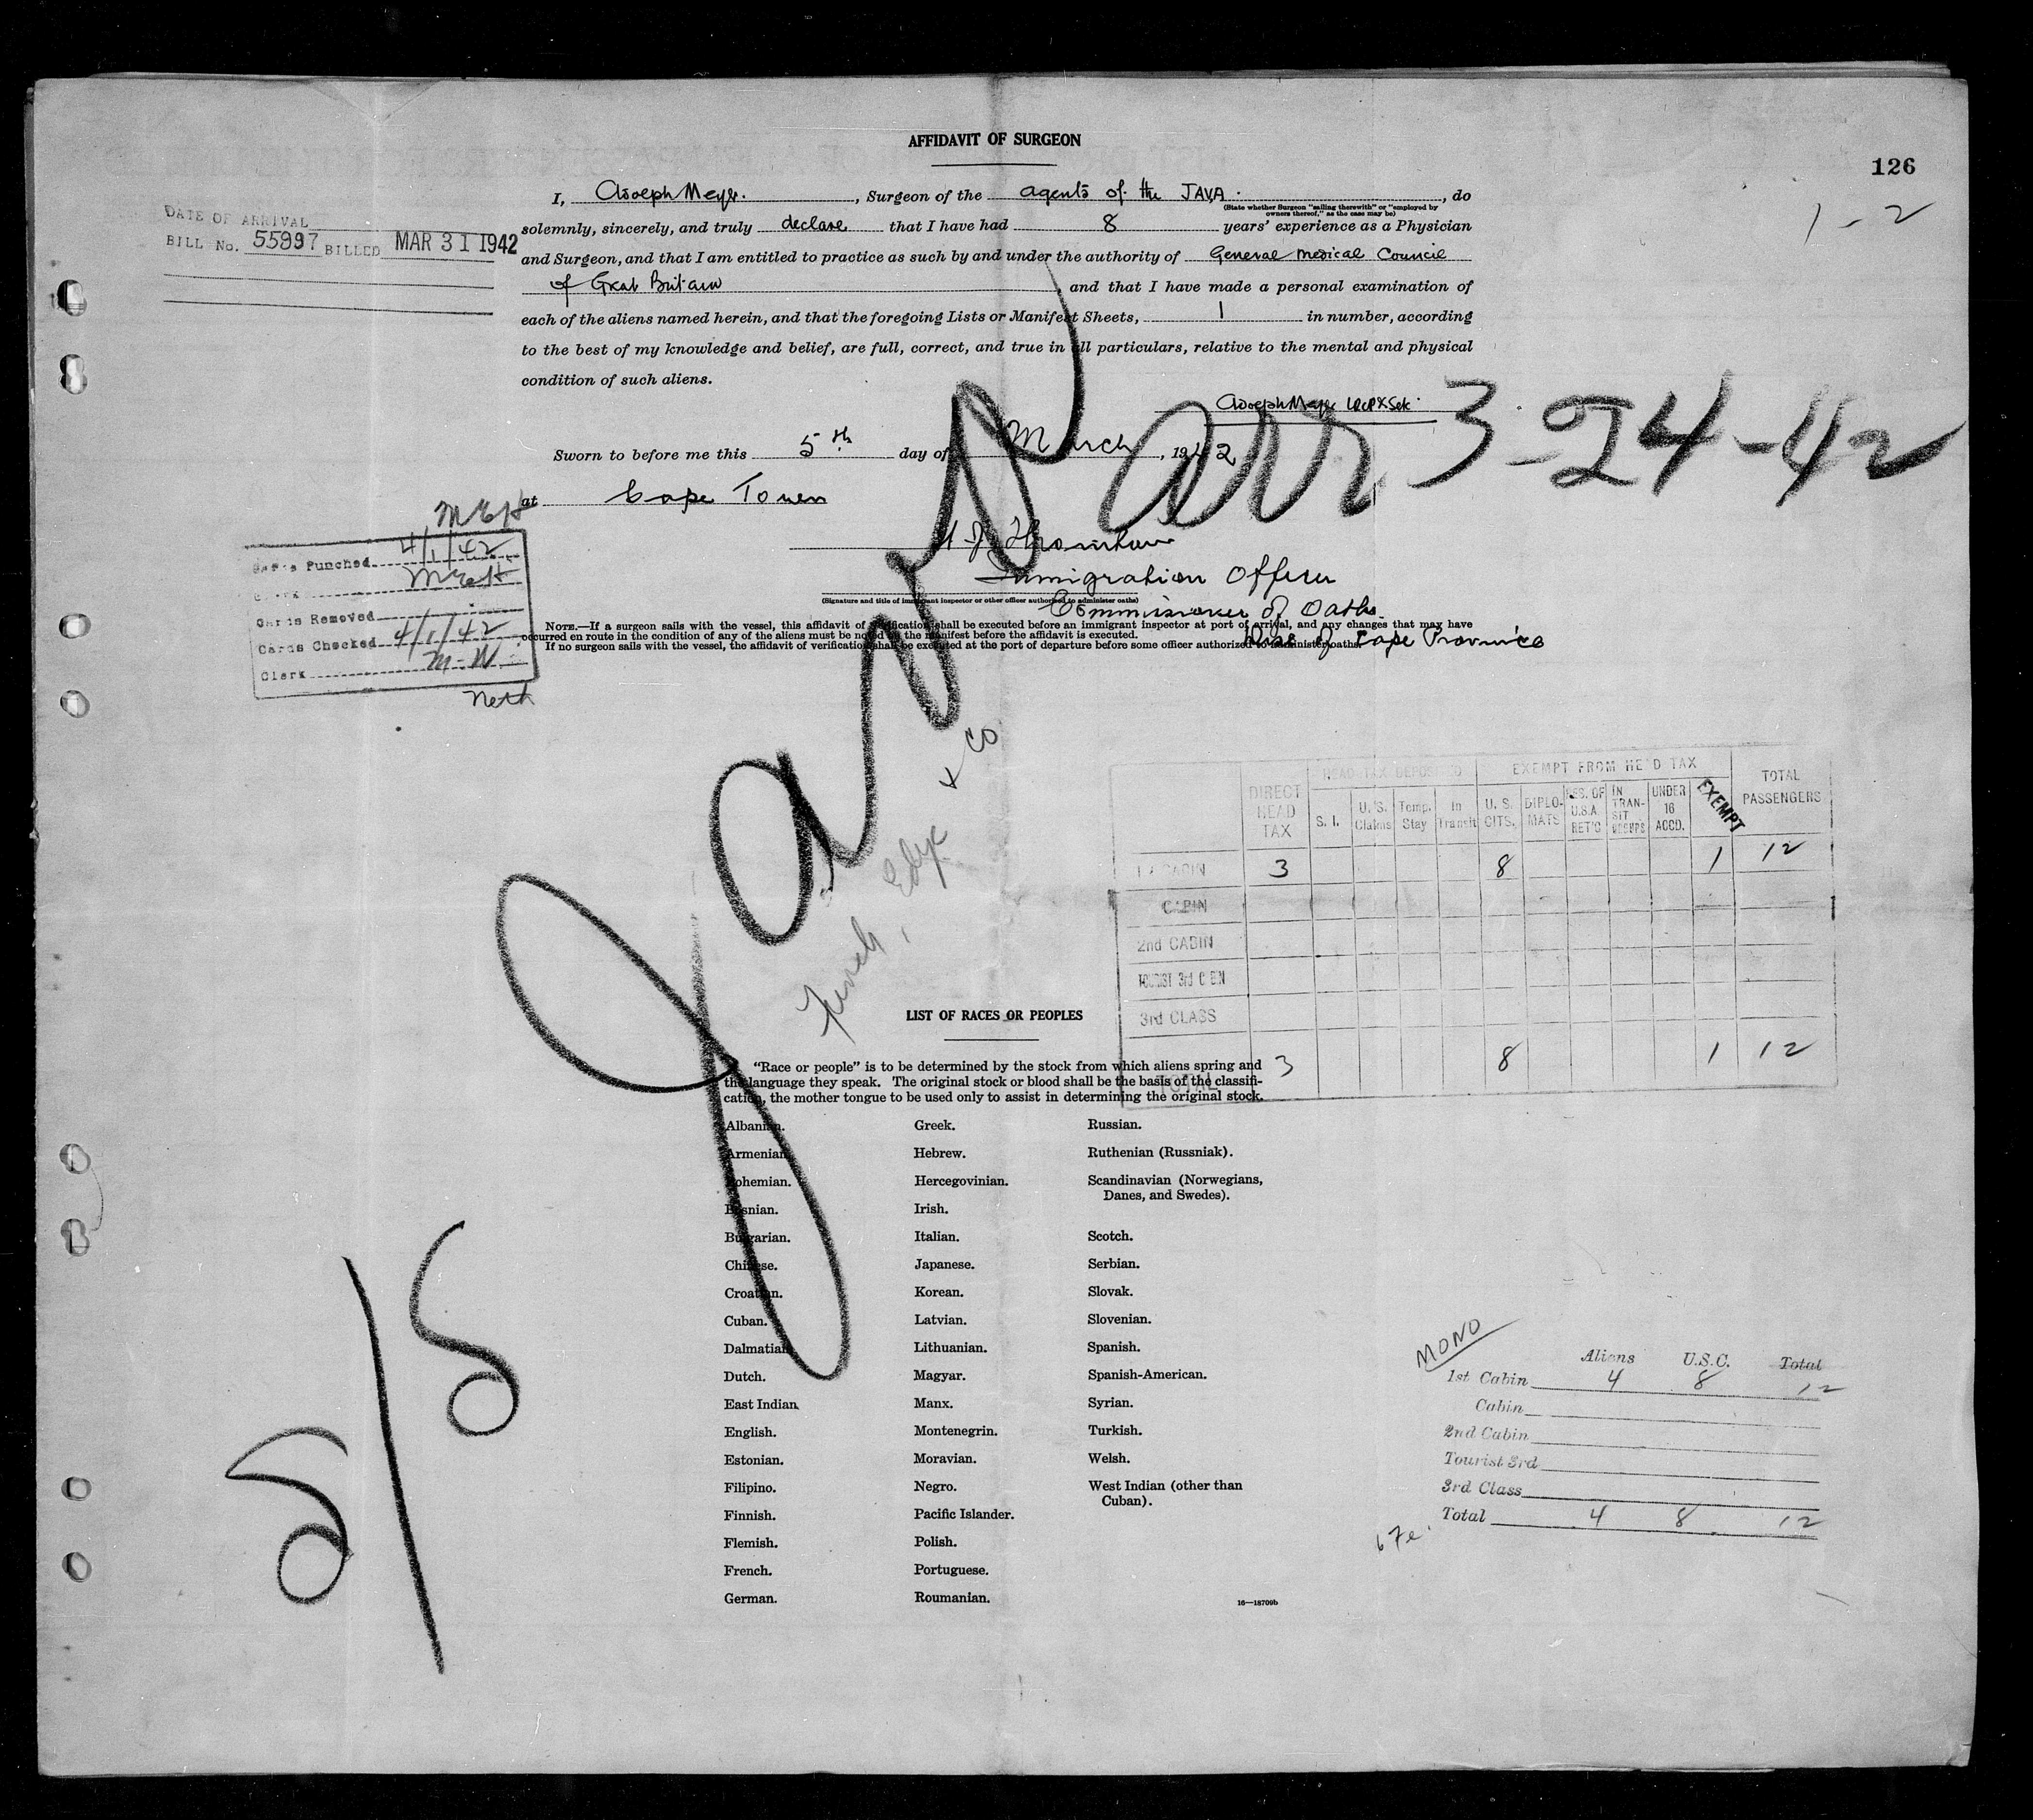 AFFIDAVIT OF SURGEON
126
1-2
DATE OF ARRIVAL
BILL No. 55997 BILLED MAR 31 1942
I, Adolph Meyer. , Surgeon of the agents of the JAVA. , do
(State whether Surgeon "sailing therewith" or "employed by
owners thereof," as the case may be)
solemnly, sincerely, and truly declare that I have had 8 years' experience as a Physician
and Surgeon, and that I am entitled to practice as such by and under the authority of General Medical Council
of Great Britain , and that I have made a personal examination of
each of the aliens named herein, and that the foregoing Lists or Manifest Sheets, 1 in number, according
to the best of my knowledge and belief, are full, correct, and true in all particulars, relative to the mental and physical
condition of such aliens.
Adolph Meyer
Sworn to before me this 5th day of March , 1942
at Cape Town
Java
arr 3-24-42
Immigration Officer
(Signature and title of immigrant inspector or other officer authorized to administer oaths)
Commissioner of Oaths
of Cape Province
NOTE.—If a surgeon sails with the vessel, this affidavit of verification shall be executed before an immigrant inspector at port of arrival, and any changes that may have
occurred en route in the condition of any of the aliens must be noted on the manifest before the affidavit is executed.
If no surgeon sails with the vessel, the affidavit of verification shall be executed at the port of departure before some officer authorized to administer oaths.
Cards Punched 4/1/42
Clerk
Cards Removed
Cards Checked 4/1/42
Clerk M-W
Neth
Funch, Edye & Co
HEAD TAX DEPOSITED EXEMPT FROM HEAD TAX
DIRECT HEAD TAX S. I. U. S. Claims Temp. Stay In Transit U. S. CITS. DIPLO-MATS RES. OF U.S.A. RET'G IN TRAN-SIT GROUPS UNDER 16 ACCD. EXEMPT TOTAL PASSENGERS
1st CABIN 3 8 1 12
CABIN
2nd CABIN
TOURIST 3rd CABIN
3rd CLASS
TOTAL 3 8 1 12
LIST OF RACES OR PEOPLES
"Race or people" is to be determined by the stock from which aliens spring and
the language they speak. The original stock or blood shall be the basis of the classifi-
cation, the mother tongue to be used only to assist in determining the original stock.
Albanian.
Armenian.
Bohemian.
Bosnian.
Bulgarian.
Chinese.
Croatian.
Cuban.
Dalmatian.
Dutch.
East Indian.
English.
Estonian.
Filipino.
Finnish.
Flemish.
French.
German.
Greek.
Hebrew.
Hercegovinian.
Irish.
Italian.
Japanese.
Korean.
Latvian.
Lithuanian.
Magyar.
Manx.
Montenegrin.
Moravian.
Negro.
Pacific Islander.
Polish.
Portuguese.
Roumanian.
Russian.
Ruthenian (Russniak).
Scandinavian (Norwegians,
Danes, and Swedes).
Scotch.
Serbian.
Slovak.
Slovenian.
Spanish.
Spanish-American.
Syrian.
Turkish.
Welsh.
West Indian (other than
Cuban).
16—18709b
MONO
Aliens U.S.C. Total
1st Cabin 4 8 12
Cabin
2nd Cabin
Tourist 3rd
3rd Class
Total 4 8 12